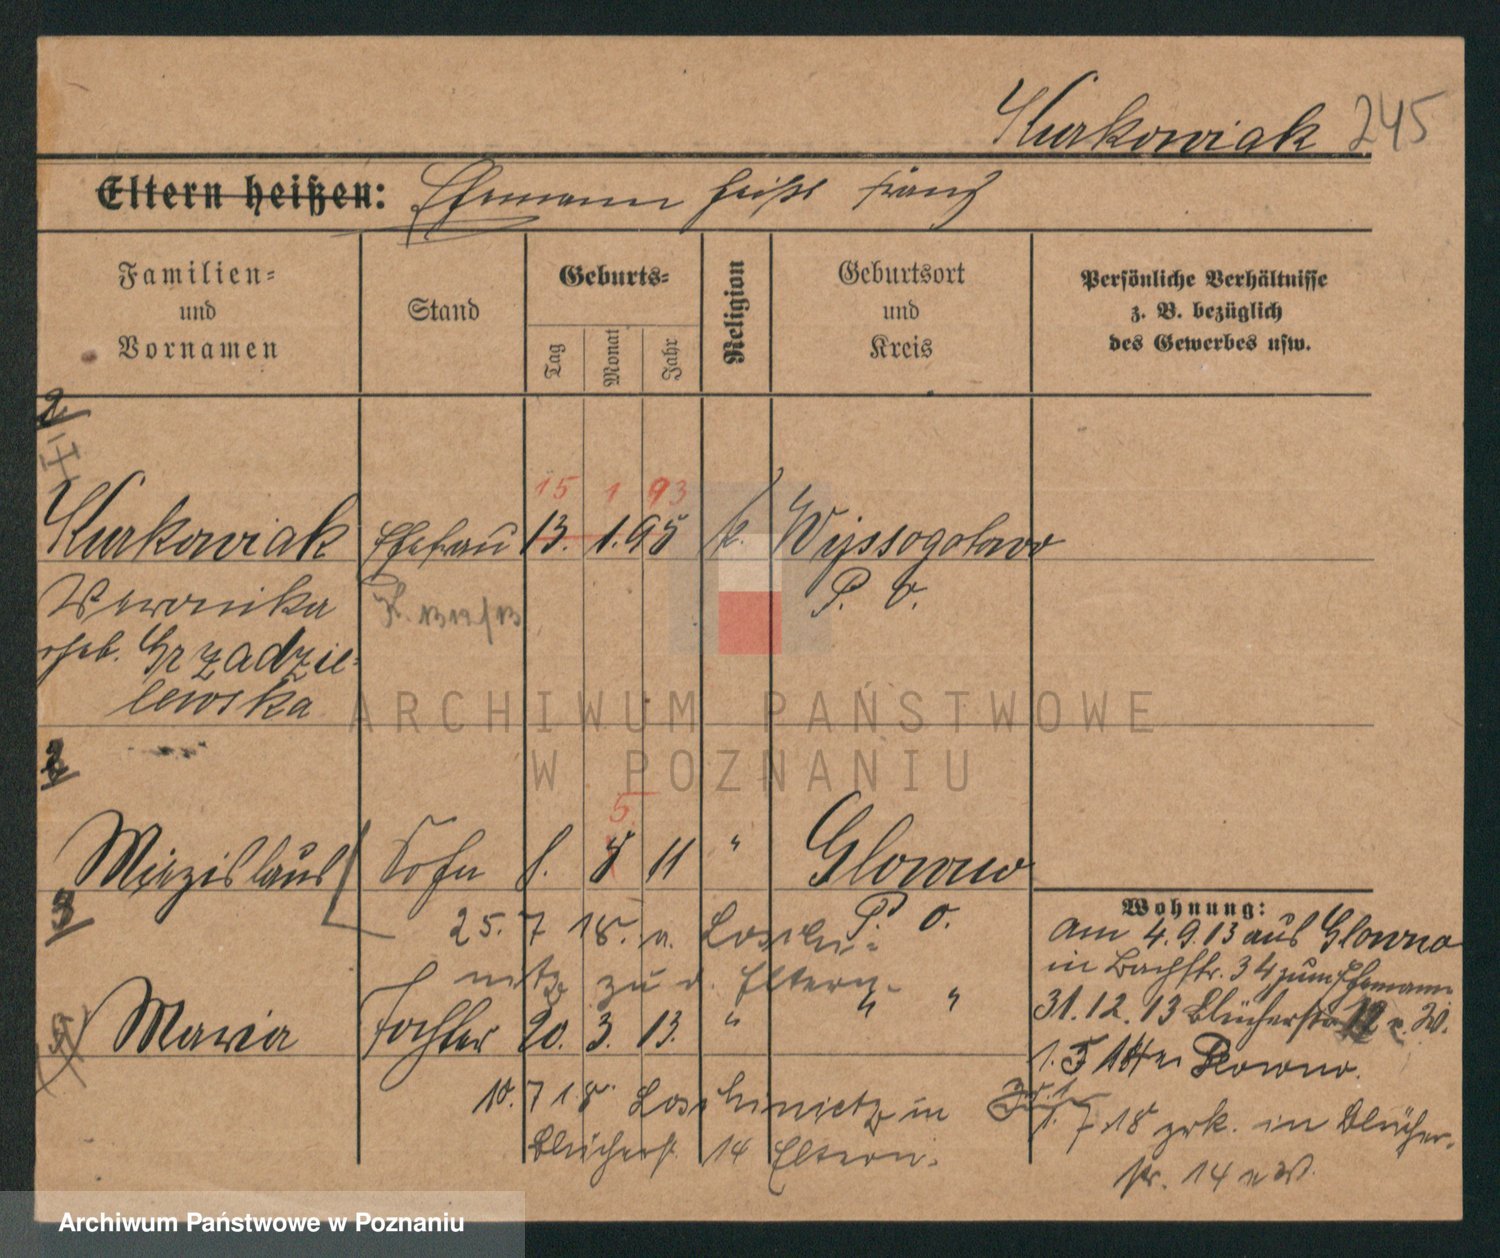 Kurkowiak 245
Eltern heißen: Ehemann heißt Franz
Familien=
und
Vornamen
Stand
Geburts=
Tag
Monat
Jahr
Religion
Geburtsort
und
Kreis
Persönliche Verhältnisse
z. B. bezüglich
des Gewerbes usw.
2
15 1 93
Kurkowiak Ehefrau 13. 1. 95 k. Wyssogotowo
Weronika P. O.
geb. Grzadzie=
lewska
2
5.
Miezislaus Sohn 8. 8 11 " Glowno
3
P. O.
25. 7 18. a. Loschi=
nitz zu d. Eltern.
Maria Tochter 20. 3. 13. " " "
10. 7 18 Loschinietz in
Blücherst. 14 Eltern.
Wohnung:
Am 4.9.13 aus Glowno
in Bachstr. 34 zum Ehemann
31.12.13 Blücherstr. 12 W.
1. 5 18 Glowno.
1. 7 18 zrk. in Blücher-
str. 14 W.
ARCHIWUM PAŃSTWOWE
W POZNANIU
Archiwum Państwowe w Poznaniu